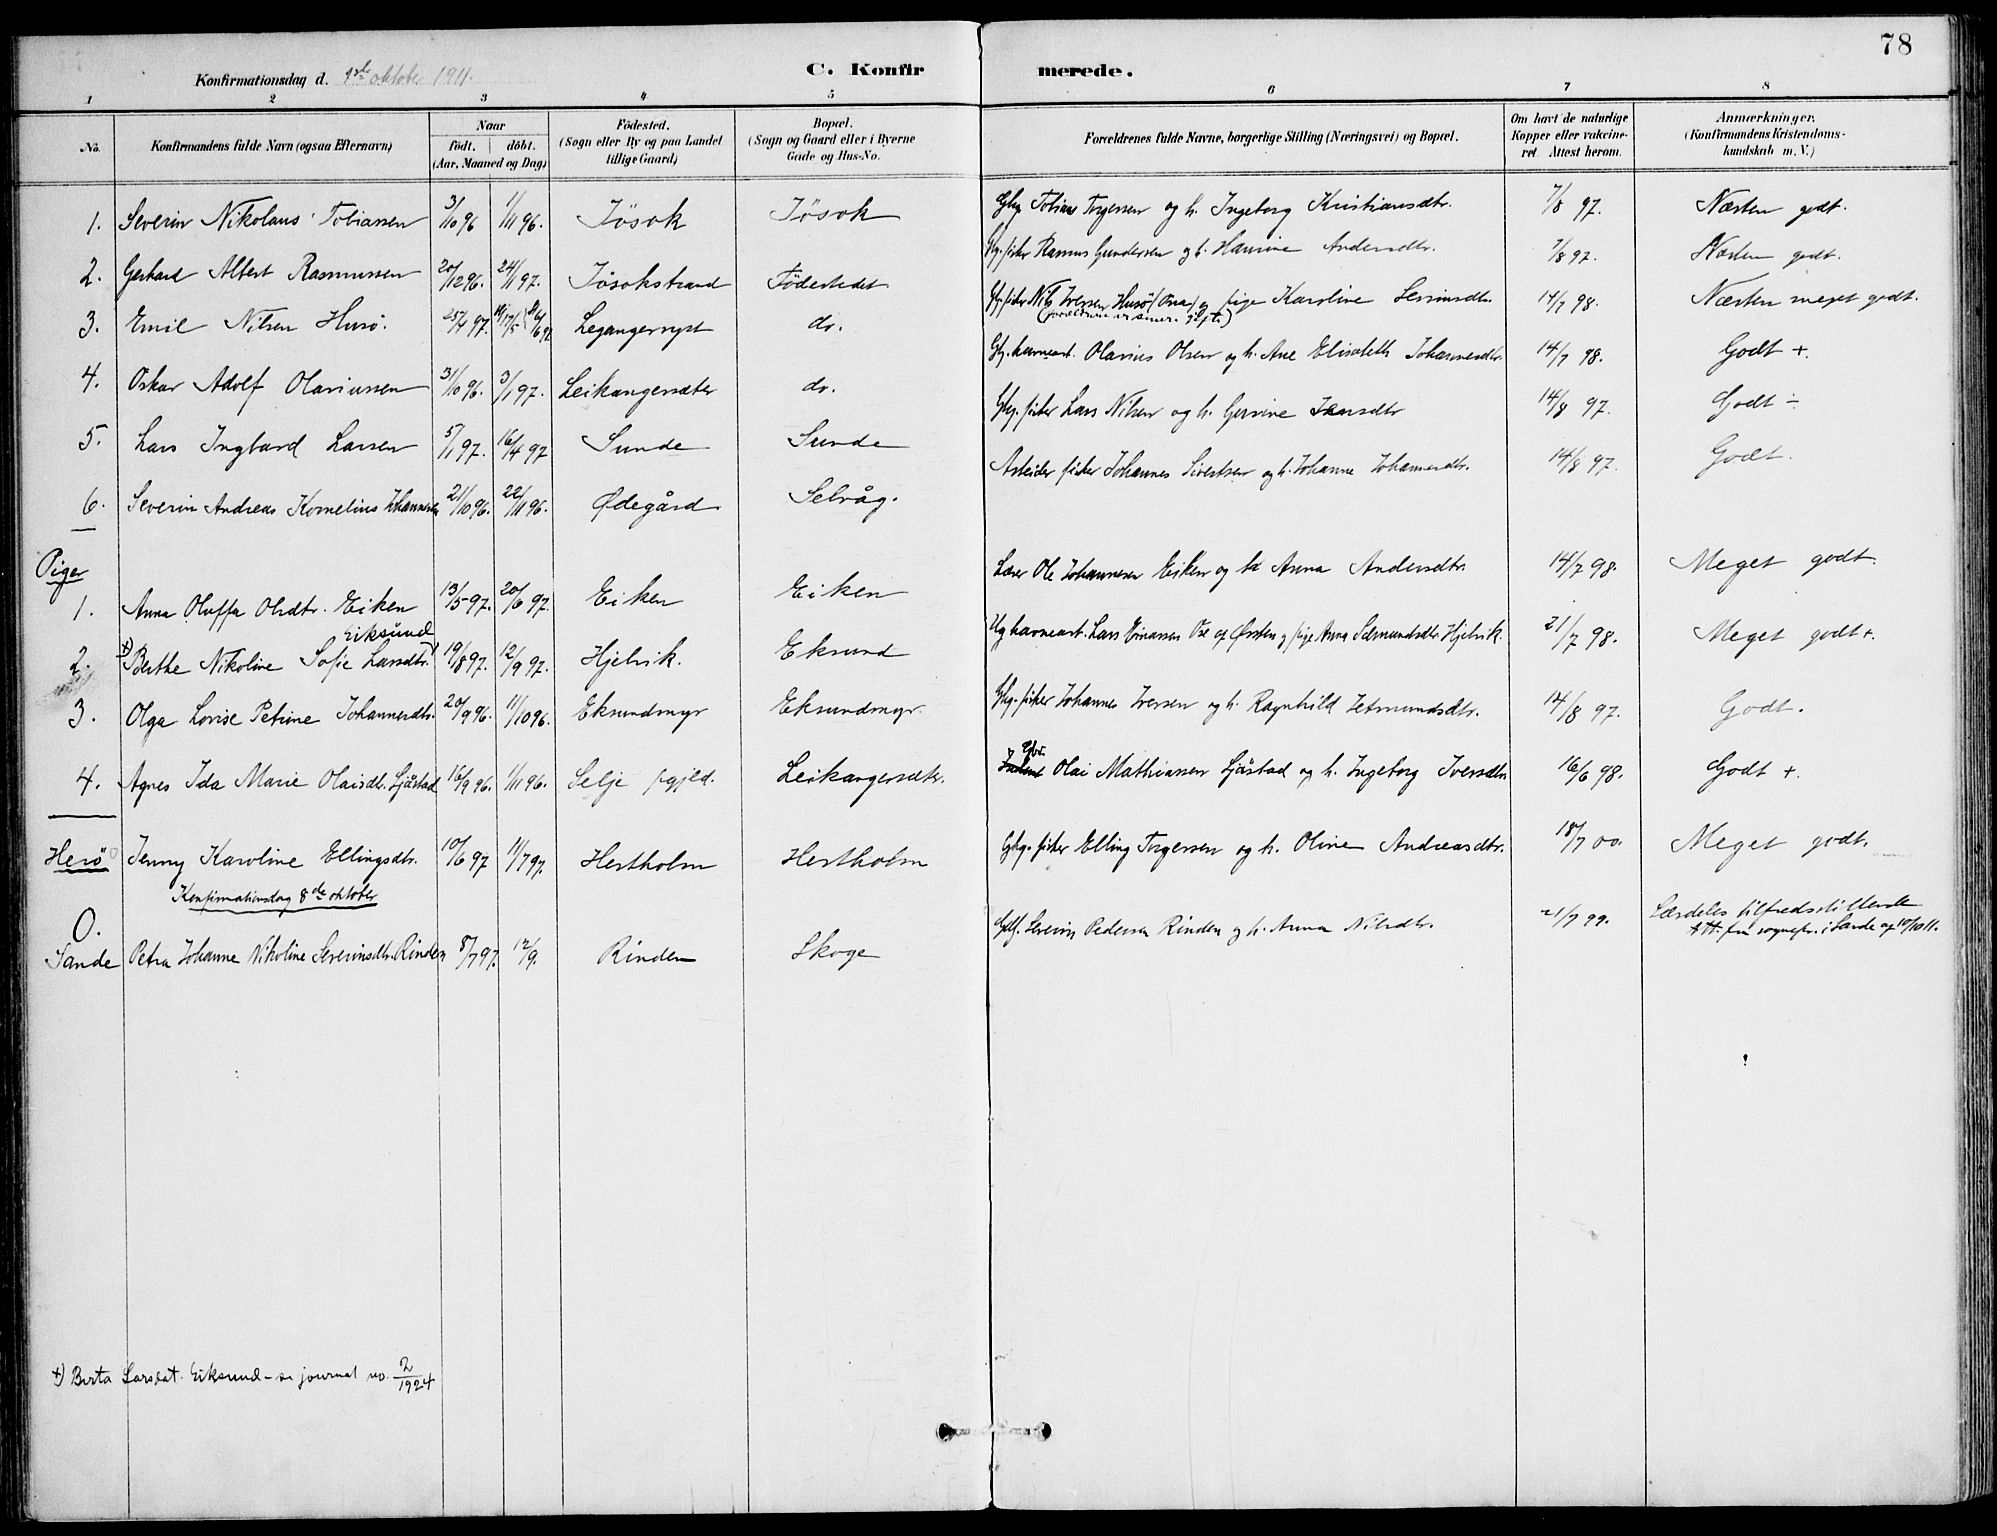 78
Konfirmationsdag d. 1ste oktober 1911.
C. Konfirmerede.
1 2 3 4 5 6 7 8
No. Konfirmandens fulde Navn (ogsaa Efternavn) Naar født. døbt. (Aar, Maaned og Dag) Fødested. (Sogn eller By og paa Landet tillige Gaard) Bopæl. (Sogn og Gaard eller i Byerne Gade og Hus-No. Forældrenes fulde Navne, borgerlige Stilling (Næringsvei) og Bopæl. Om havt de naturlige Kopper eller vakcineret. Attest herom. Anmærkninger. (Konfirmandens Kristendomskundskab m. V.)
1. Severin Nikolaus Tobiassen 3/10 96 1/11 96. Jøsok Jøsok Gbr. Tobias Torgersen og h. Ingeborg Kristiansdtr. 7/8 97. Næsten godt.
2. Gerhard Albert Rasmussen 20/12 96. 24/1 97. Jøsokstrand Fødestedet Rasmus Gundersen og h. Hansine Andersdtr. 7/8 97. Næsten godt.
3. Emil Nilsen Husø. 25/4 97. 17/5 Legangernyst do. Nils Iversen Husø og pige Karoline Severinsdtr. 14/7 98. Næsten meget godt.
4. Oskar Adolf Olariussen 31/10 96. 3/1 97. Leikangersæter do. Olarius Olsen og h. Ane Elisabeth Johannesdtr. 14/7 98. Godt +.
5. Lars Ingbard Larsen 5/1 97. 16/4 97 Sunde Sunde Gbr. fisker Lars Nilsen og h. Gurine Jensdtr 14/8 97. Godt ÷
6. Severin Andreas Kornelius Johannessen 21/10 96. 22/11 96. Ødegård Selvåg. Arbeider fisker Johannes Sivertsen og h. Johanne Johannesdtr. 14/8 97. Godt.
Piger
1. Anna Oluffa Olsdtr. Eiken 13/5 97. 20/6 97. Eiken Eiken Lærer Ole Johannesen Eiken og h. Anna Andersdtr. 14/7 98. Meget godt.
Eiksund
2. +) Berthe Nikoline Sofie Larsdtr. 19/8 97. 12/9 97. Hjelvik. Eksund Ug havnearb. Lars Einassen Ose af Ørsten og pige Anna Sæmundsdtr. Hjelvik. 21/7 98. Meget godt +.
3. Olga Lovise Petrine Johannesdtr. 20/9 96. 11/10 96. Eksundmyr Eksundmyr. Gbr. fisker Johannes Iversen og h. Ragnhild Zetmundsdtr. 14/8 97. Godt.
4. Agnes Ida Marie Olaisdtr. Sjåstad 16/9 96. 1/11 96. Selje pgjld. Leikangersætr. Gbr. Olai Mathiassen Sjåstad og h. Ingeborg Iversdtr 16/6 98. Godt +.
Herø Jenny Karoline Ellingsdtr. 10/6 97 11/7 97. Hestholm Hestholm Gbr. fisker Elling Torgersen og h. Oline Andreasdtr. 18/7 00. Meget godt.
Konfirmationsdag 8de oktober
O.
Sande Petra Johanne Nikoline Severinsdtr. Rinden 8/7 97. 12/9. Rinden Skoge Severin Pedersen Rinden og h. Anna Nilsdtr. 21/7 99. Særdeles tilfredsstillende att. fra sognepr. i Sande af 10/10 11.
+) Berta Larsdat. Eiksund – se journal no. 2/1924